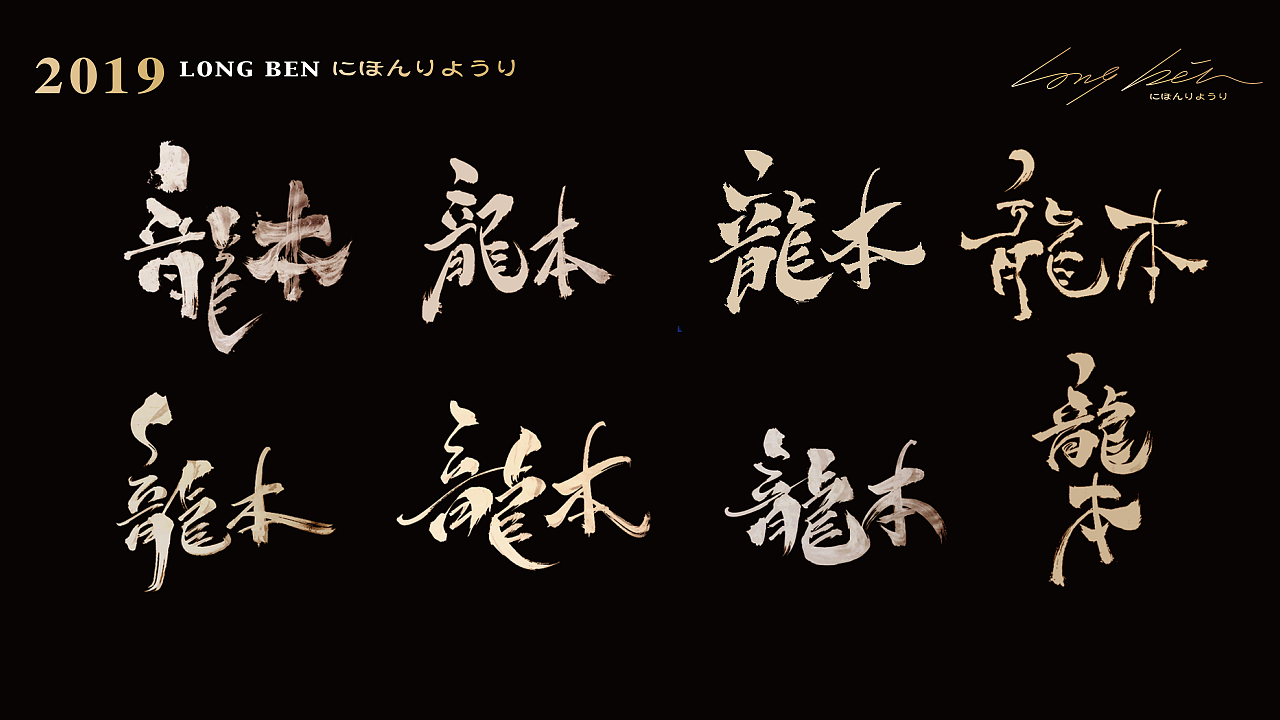 2019 LONG BEN にほんりようり
Long běn
にほんりようり
龍本 龍本 龍本 龍本
龍本 龍本 龍本 龍本